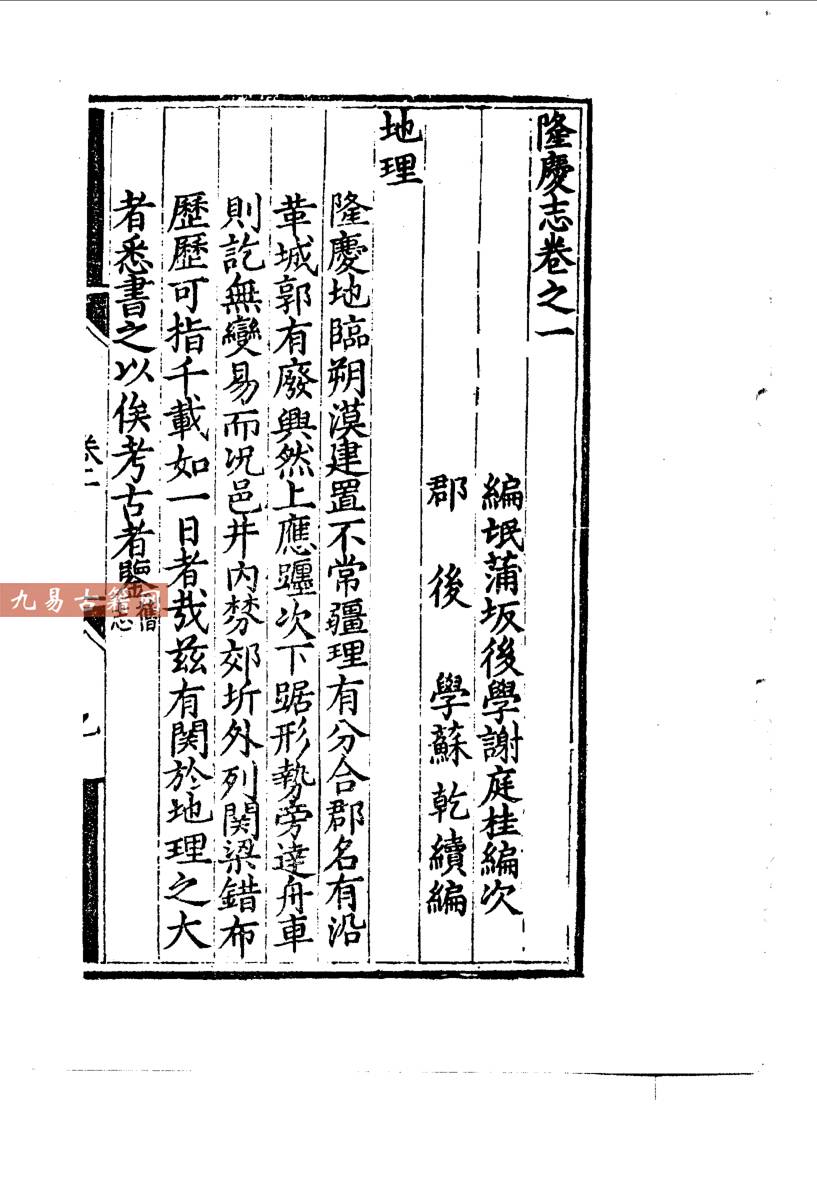 隆慶志卷之一
編氓蒲坂後學謝庭桂編次
郡後學蘇乾續編
地理
隆慶地臨朔漠建置不常疆理有分合郡名有沿
革城郭有廢興然上應躔次下踞形勢旁達舟車
則訖無變易而況邑井內棼郊圻外列関梁錯布
歷歷可指千載如一日者哉茲有関於地理之大
者悉書之以俟考古者鑒舊志
卷一
九易古籍网